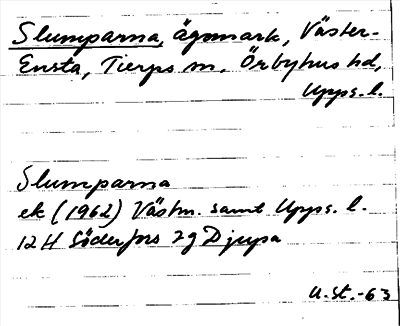 Slumparna, ägomark, Väster-
Ensta, Tierps sn, Örbyhus hd,
Upps. l.
Slumparna
ek (1962) Västm. samt Upps. l.
12 H Söderfors 2g Djupa
U. St. -63